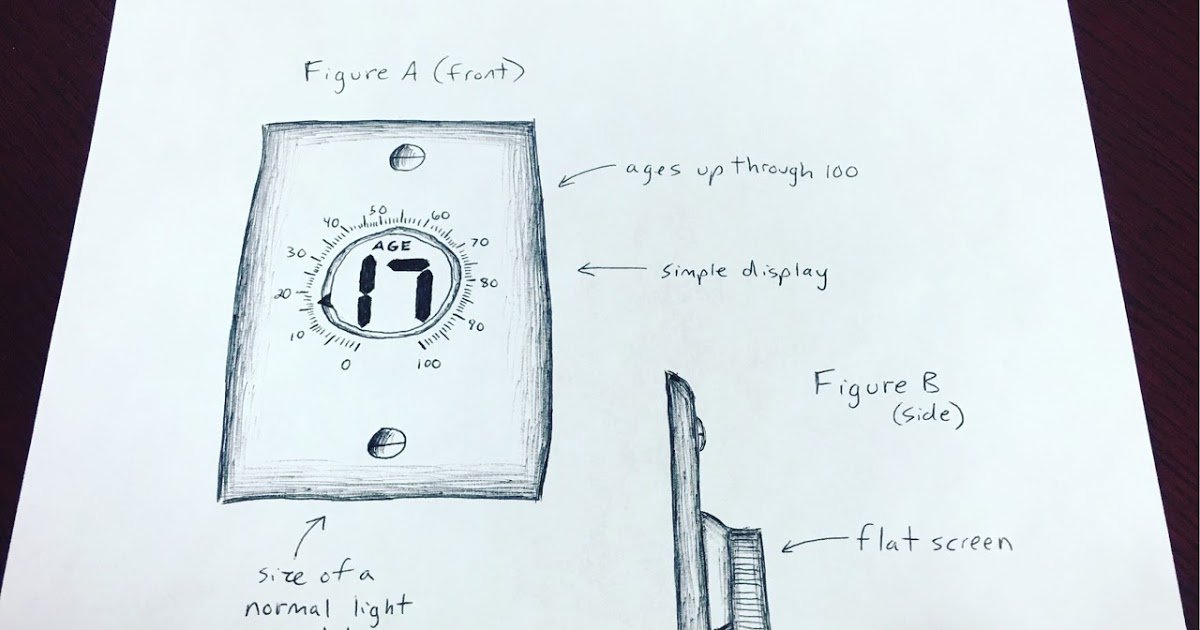 Figure A (front)
ages up through 100
50
40
60
30
70
AGE
simple display
17
20
80
10
90
0
100
Figure B
(side)
flat screen
size of a
normal light